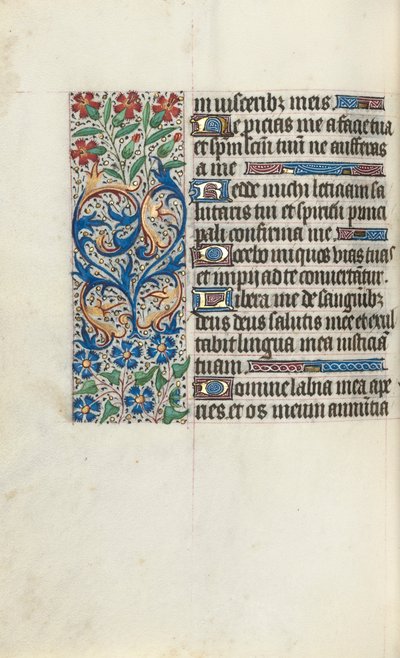 in visceribz meis.
Ne picias me a facie tua
et spm scm tuu ne aufferas
a me
Redde michi leticiam sa
lutaris tui et spiritu princi
pali confirma me.
Docebo iniquos vias tuas
et impij ad te convertantur.
Libera me de sanguibz
deus deus salutis mee et exul
tabit lingua mea iusticia
tuam
Domine labia mea ape
ries. et os meum annutia